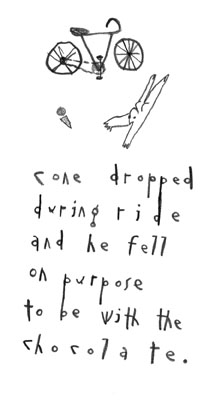 cone dropped
during ride
and he fell
on purpose
to be with the
chocolate.